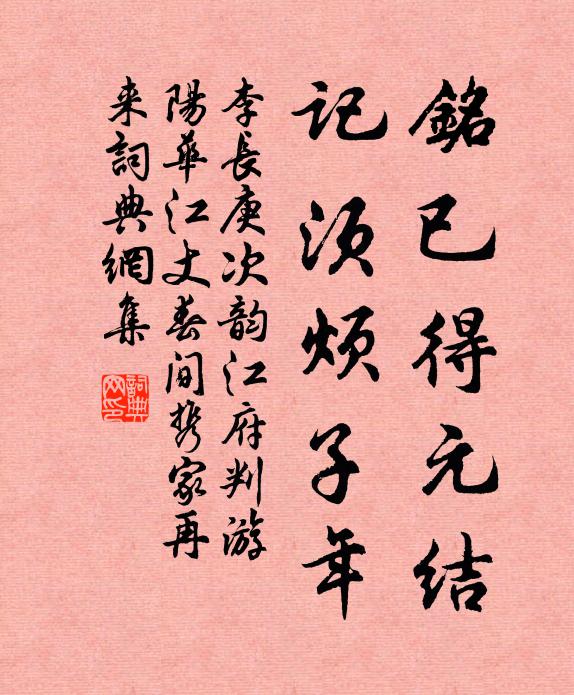 銘已得元结
记须烦子年
李长庚次韵江府判游
阳华江丈春间携家再
来词典網集
詞典网印